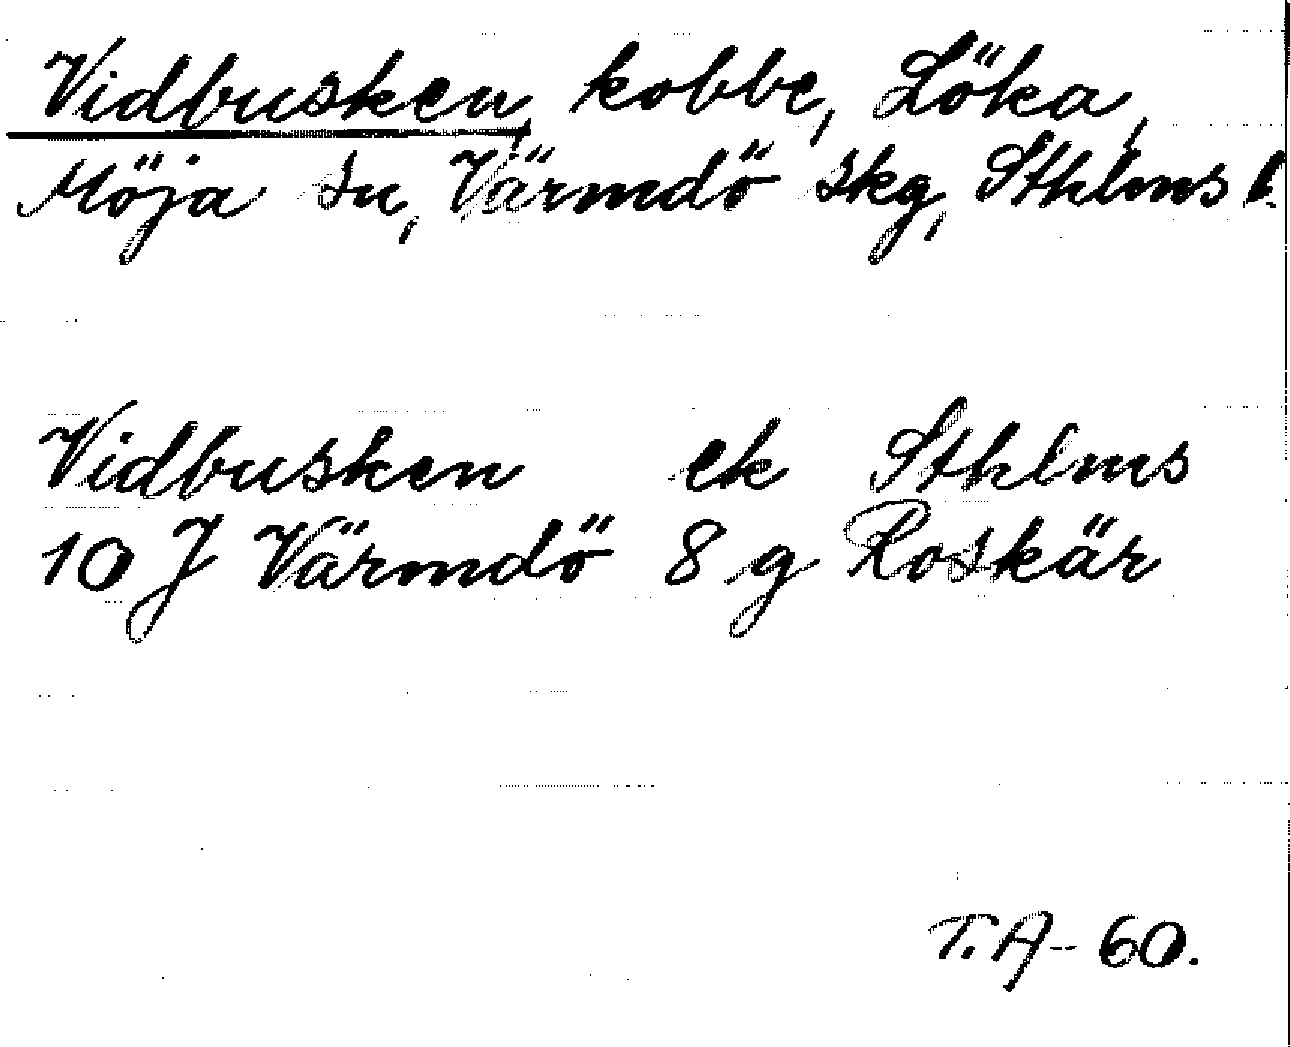 Vidbusken, kobbe, Löka,
Möja sn, Värmdö skg, Sthlms l.
Vidbusken ek Sthlms
10 J Värmdö 8 g Roskär
T.A- 60.